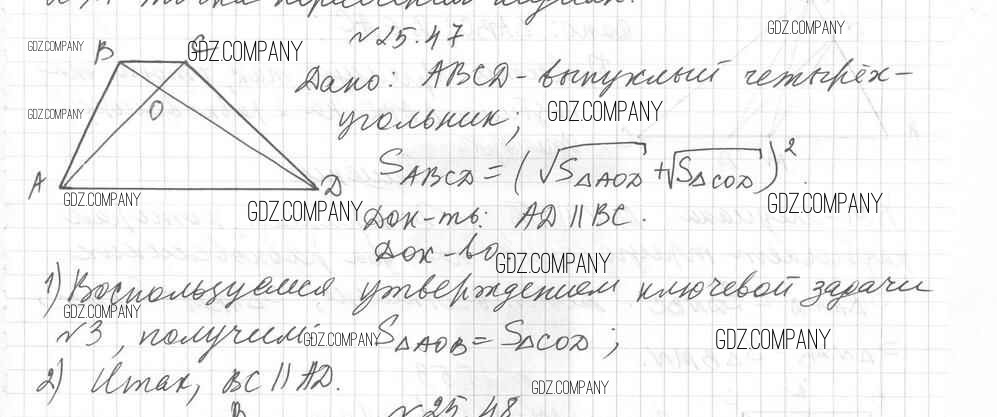 №25.47
Дано: ABCD - выпуклый четырёх-
угольник;
S ABCD = (√S△AOD + √S△COD)².
Док-ть: AD || BC.
Док-во
1) Воспользуемся утверждением ключевой задачи
№3, получим: S△AOB = S△COD;
2) Итак, BC || AD.
№25.48
B
A
B
O
D
GDZ.COMPANY
GDZ.COMPANY
GDZ.COMPANY
GDZ.COMPANY
GDZ.COMPANY
GDZ.COMPANY
GDZ.COMPANY
GDZ.COMPANY
GDZ.COMPANY
GDZ.COMPANY
GDZ.COMPANY
GDZ.COMPANY
GDZ.COMPANY